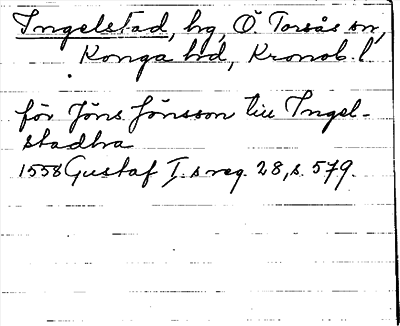 Ingelstad, hg, Ö. Torsås sn,
Konga hd, Kronob. l
för Jöns Jönsson till Ingel-
stadha
1558 Gustaf I.s reg. 28, s. 579.